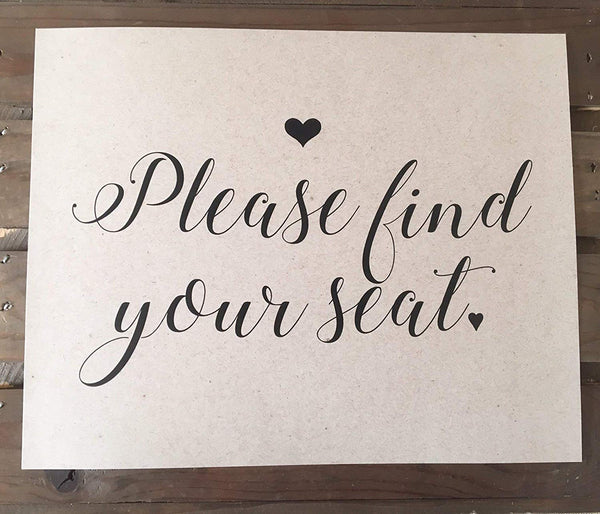 Please find
your seat